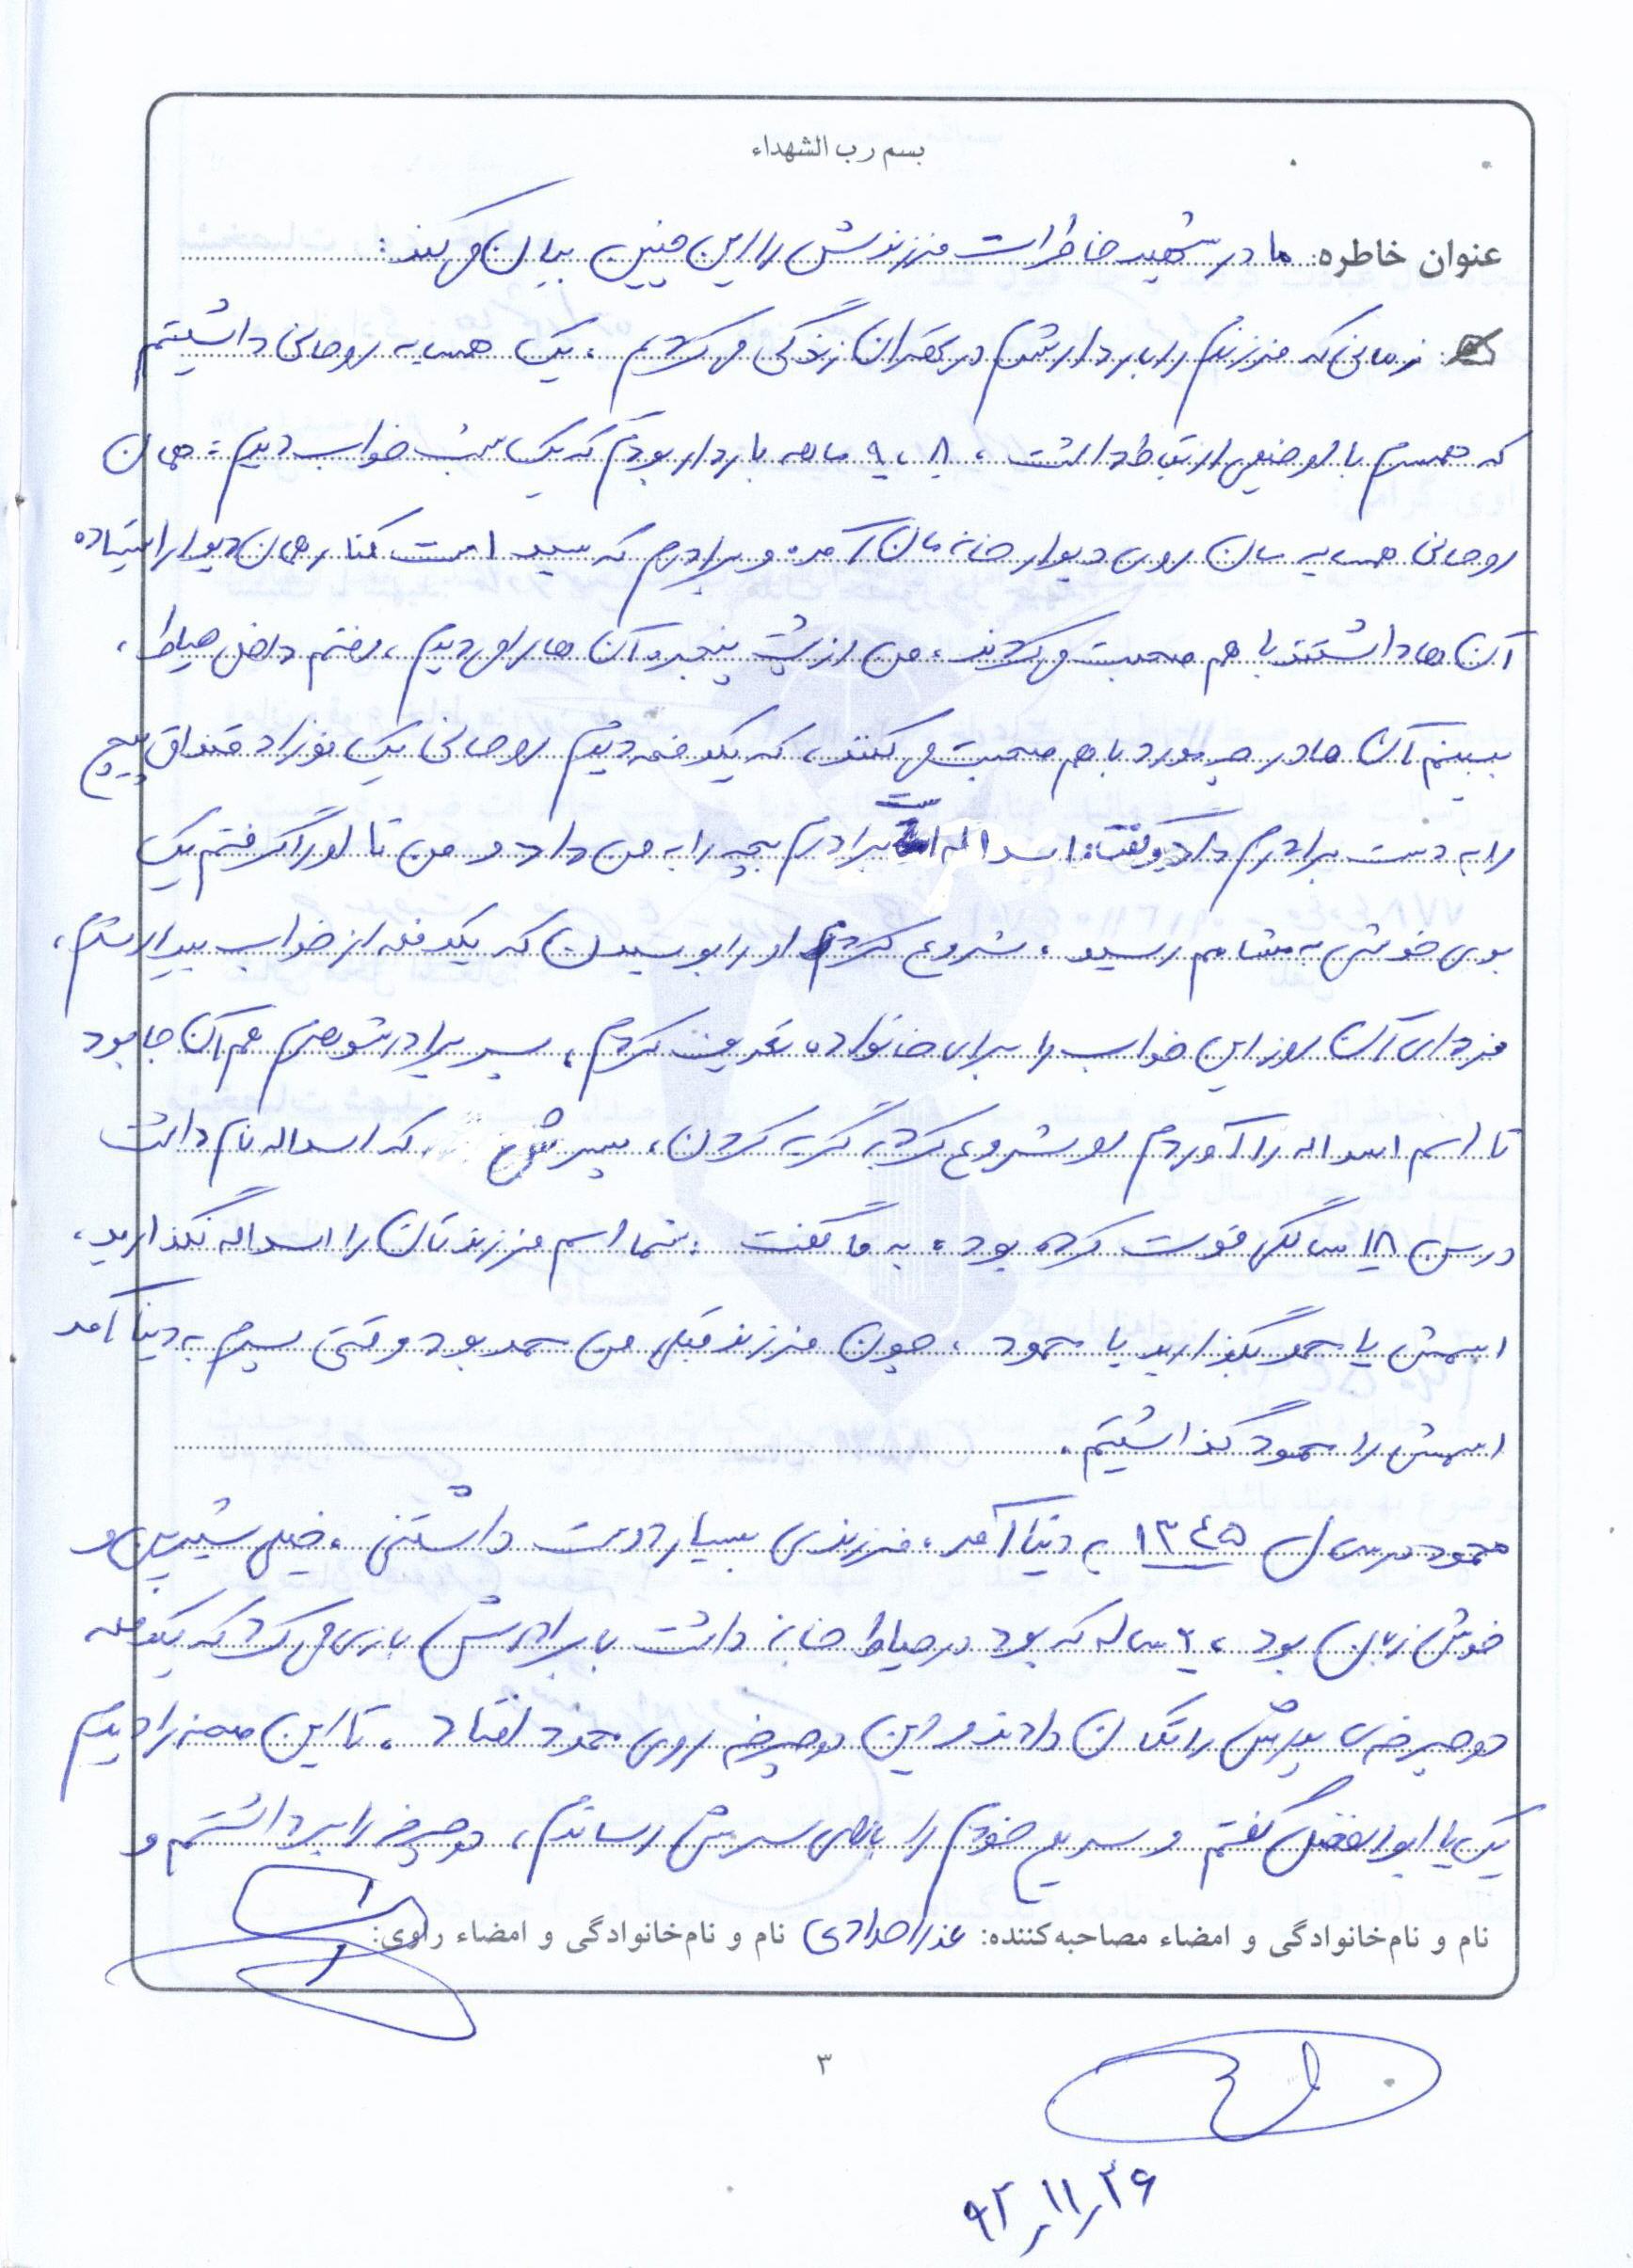 بسم رب الشهداء
عنوان خاطره: مادر شهید خاطرات فرزندش را این چنین بیان می کند:
زمانی که فرزندم را باردار شدم در تهران زندگی می کردیم، یک همسایه روحانی داشتیم
که همسرم با او خیلی ارتباط داشت، ۸، ۹ ماهه باردار بودم که یک شب خواب دیدم: همان
روحانی همسایه مان روی دیوار خانه مان آمده و برادرم که سید است کنار همان دیوار ایستاده
آن ها داشتند با هم صحبت می کردند، من از پشت پنجره آن ها را می دیدم، رفتم داخل حیاط،
ببینم آن ها در چه مورد با هم صحبت می کنند، که یکدفعه دیدم روحانی یک نوزاد قنداق پیچ
را به دست برادرم داد و گفت: اسداله است برادرم بچه را به من داد و من تا او را گرفتم یک
بوی خوشی به مشامم رسید، شروع کردم او را بوسیدن که یکدفعه از خواب بیدار شدم،
فردای آن روز این خواب را برای خانواده تعریف کردم، پسر برادر شوهرم هم آن جا بود
تا اسم اسداله را آوردم او شروع کرد به گریه کردن، پسرش که اسداله نام داشت
در سن ۱۸ سالگی فوت کرده بود، به ما گفت: شما اسم فرزندتان را اسداله نگذارید،
اسمش یا محمد بگذارید یا محمود، چون فرزند قبلی من محمد بود وقتی پسرم به دنیا آمد
اسمش را محمود گذاشتیم.
محمود در سال ۱۳۴۵ به دنیا آمد، فرزندی بسیار دوست داشتنی، خیلی شیرین و
خوش زبان بود، ۲ ساله که بود در حیاط خانه داشت با برادرش بازی می کرد که یکدفعه
دوچرخه ی پدرش را تکان دادند و این دوچرخه روی محمود افتاد. تا این صحنه را دیدم
یک یا ابوالفضل گفتم و سریع خودم را بالای سرش رساندم، دوچرخه را برداشتم و
نام و نام‌خانوادگی و امضاء مصاحبه‌کننده: عذرا مرادی نام و نام‌خانوادگی و امضاء راوی:
۳
۹۲٫۱۱٫۲۶